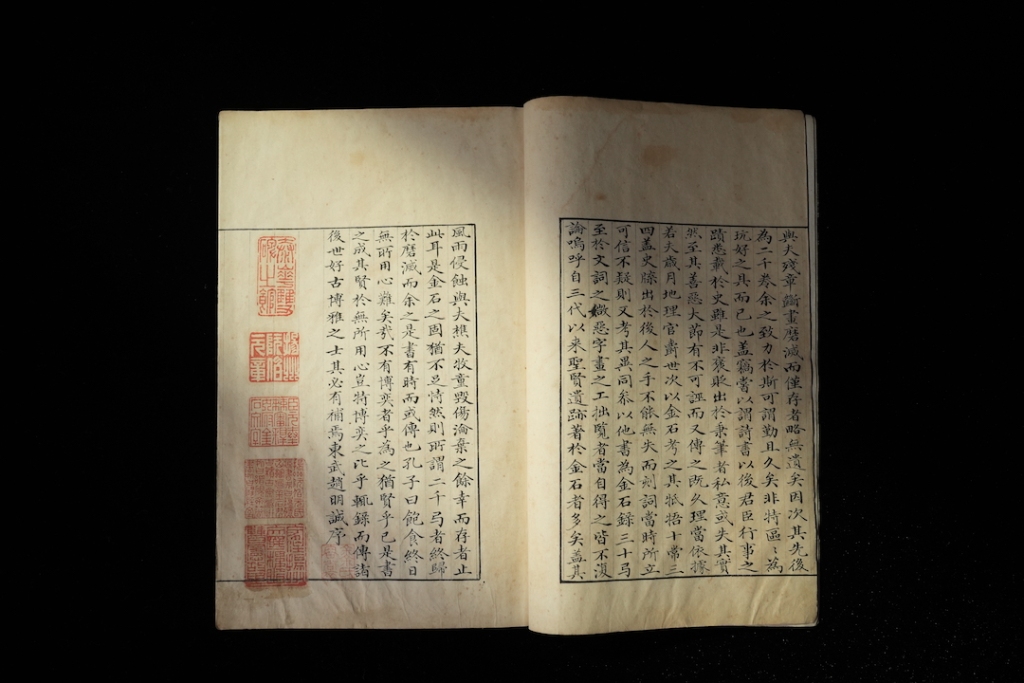 與夫殘章斷畫磨滅而僅存者略無遺矣因次其先後
為二千卷余之致力於斯可謂勤且久矣非特區〻為
玩好之具而已也盖竊嘗以謂詩書以後君臣行事之
蹟悉載於史雖是非褒貶出於秉筆者私意或失其實
然至其善惡大節有不可誣而又傳之既久理當依據
若夫歲月地理官爵世次以金石考之其牴牾十常三
四盖史牒出於後人之手不能無失而刻詞當時所立
可信不疑則又考其異同叅以他書為金石錄三十弓
至於文詞之媺惡字畫之工拙覧者當自得之皆不復
論嗚呼自三代以來聖賢遺跡著於金石者多矣盖其
風雨侵蝕與夫樵夫牧童毀傷淪棄之餘幸而存者止
此耳是金石之固猶不足恃然則所謂二千弓者終歸
於磨滅而余之是書有時而或傳也孔子曰飽食終日
無所用心難矣哉不有博奕者乎為之猶賢乎已是書
之成其賢於無所用心豈特博奕之比乎輒錄而傳諸
後世好古博雅之士其必有補焉東武趙明誠序
泰華雙碑之館
揚州阮伯元章